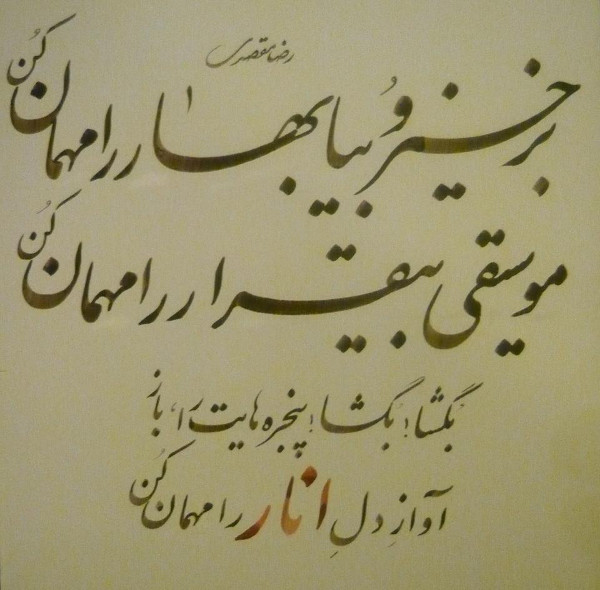 رضا مقصدی
برخیز و بیا بهار را مهمان کُن
موسیقی بیقرار را مهمان کُن
بگشا! بگشا! پنجره هایت را، باز
آوازِ دلِ انار را مهمان کُن